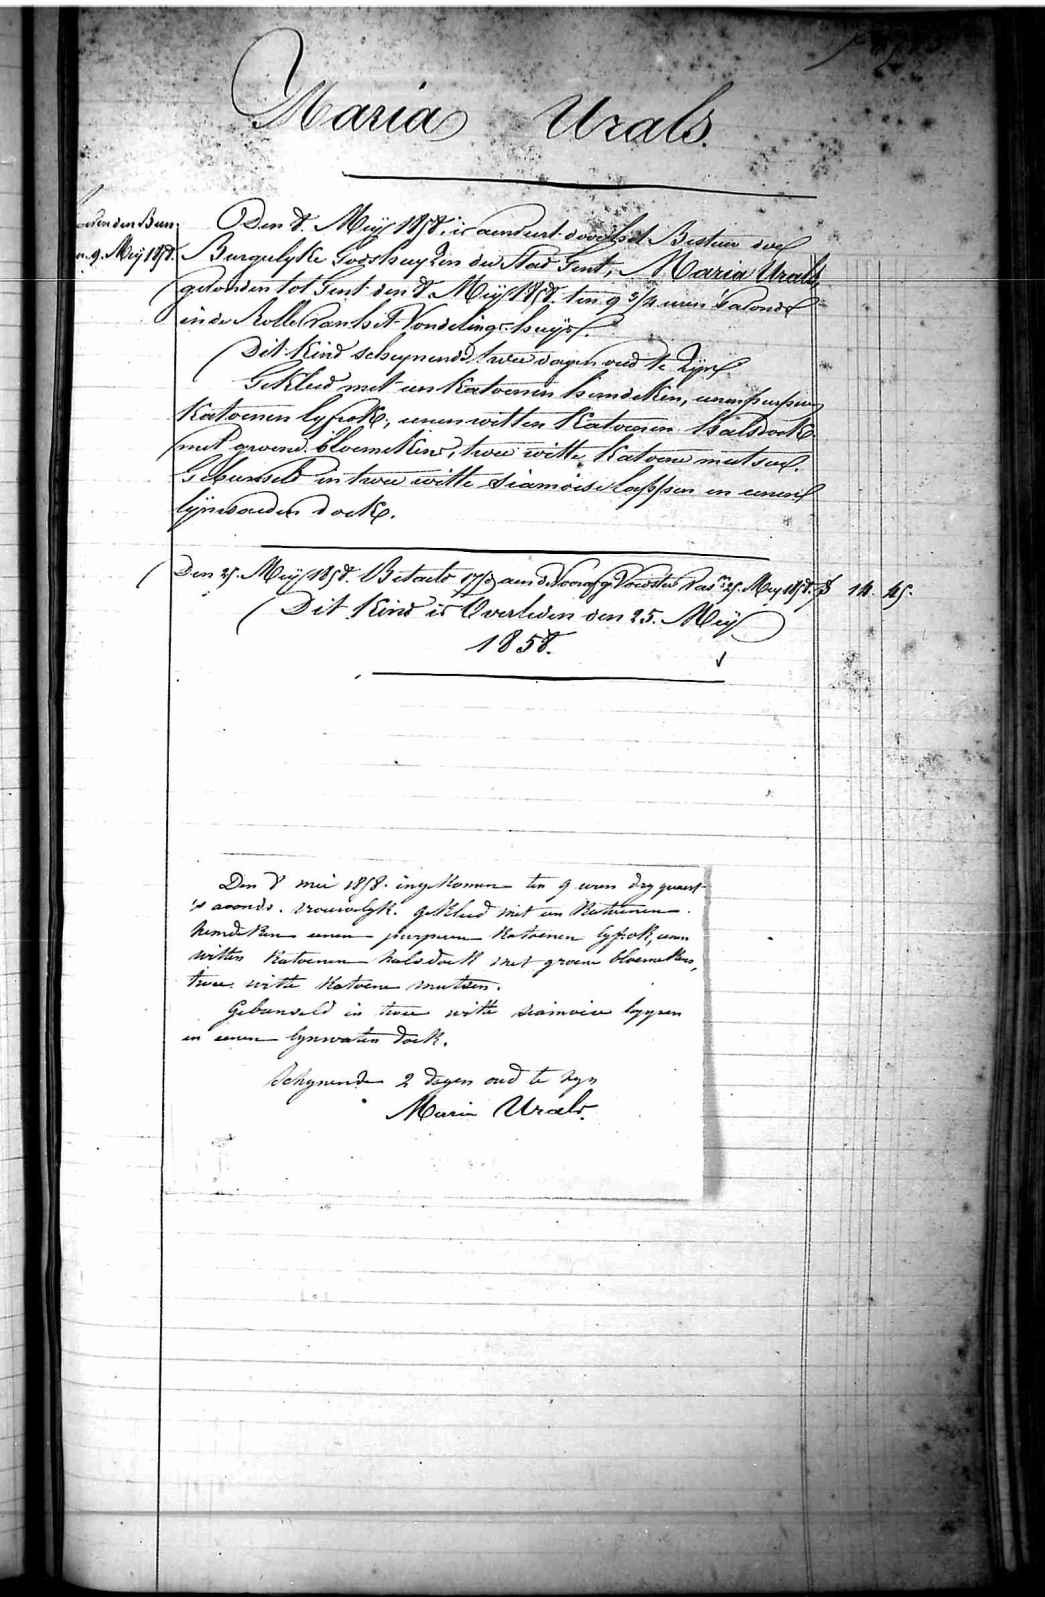 Maria Urals.
den Burn.
9. Meij 1858.
Den 8. Meij 1858. is aenveert door het Bestuer der
Burgelyke Godshuyzen der Stad Gent, Maria Urals,
gevonden tot Gent den 8. Meij 1858. ten 9 3/4 uren 's avonds
in de Rolle van het Vondelingshuys.
Dit Kind schynende twee dagen oud te zyn
Gekleed met een Katoenen hemdeken, eenen purpuren
Katoenen lyfrok, eenen witten Katoenen halsdoek
met groene bloemekens, twee witte Katoene mutsen.
Gebunseld in twee witte Siamoise lappen en eenen
lynwaeden doek.
Den 25. Meij 1858. Betaelt aen de Voedster 25. Mey 1858. 14. 45.
Dit Kind is Overleden den 25. Meij
1858.
Den 8 mei 1858. ingekomen ten 9 uren dry quaert
's avonds. vrouwelyk. gekleed met een Katoenen
hemdeken eenen purpuren Katoenen lyfrok, eenen
witten Katoenen halsdoek met groene bloemekens,
twee witte Katoene mutsen.
Gebunseld in twee witte siamoise lappen
en eenen lynwaten doek.
Schynende 2 dagen oud te zyn
Maria Urals.